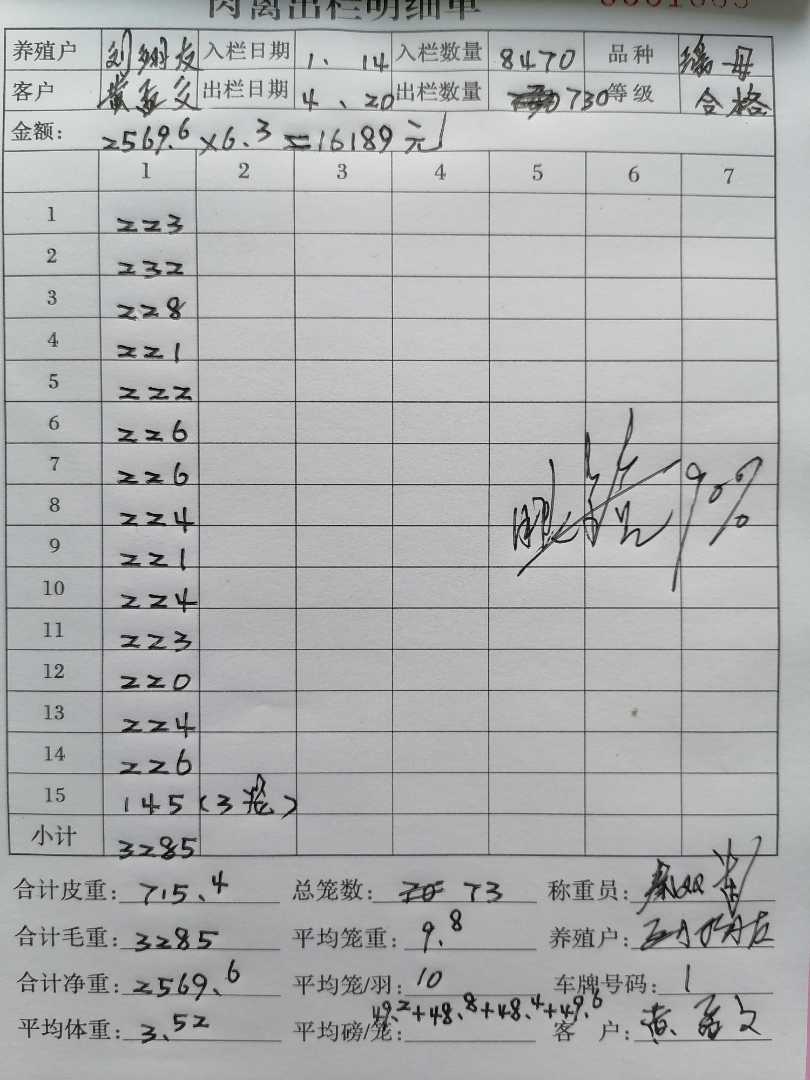 肉禽出栏明细单
养殖户 入栏日期 1、14 入栏数量 8470 品种
客户 出栏日期 4、20 出栏数量 730 等级 合格
金额: 2569.6×6.3=16189元
1 2 3 4 5 6 7
1 223
2 232
3 228
4 221
5 222
6 226
7 226
8 224
9 221
10 224
11 223
12 220
13 224
14 226
15 145(3笼)
小计 3285
90%
合计皮重: 715.4 总笼数: 73 称重员:
合计毛重: 3285 平均笼重: 9.8 养殖户:
合计净重: 2569.6 平均笼/羽: 10 车牌号码: 1
平均体重: 3.52 平均磅/笼: 49.2+48.8+48.4+49.6 客 户: